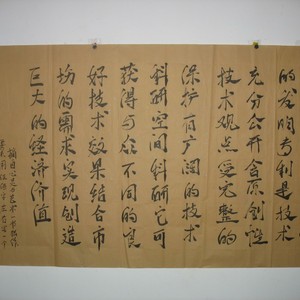 的发明专利是技术
充分公开含原创性
技术观点受完整的
保护有广阔的技术
科研空间科研它可
获得与众不同的良
好技术效果结合市
场的需求实现创造
巨大的经济价值
摘自